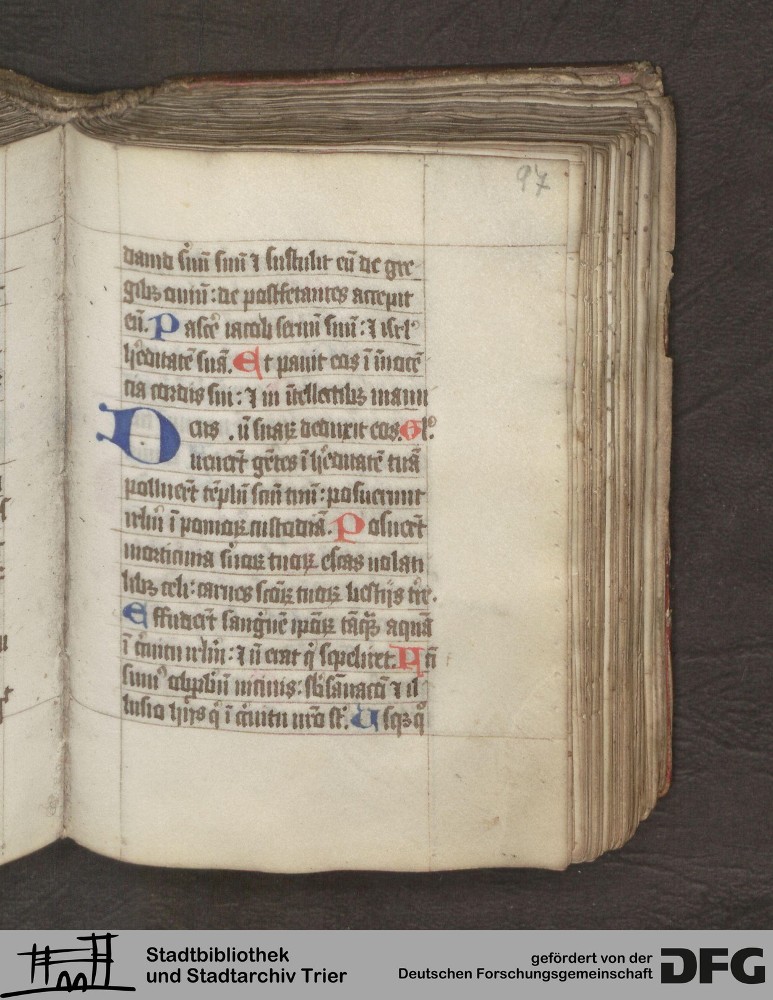 97
dauid s̄uū suū ⁊ sustulit eū de gre
gibꝫ ouiū: de postfetantes accepit
eū. Pascē iacob seruū suū: ⁊ isrl̄
h̓editatē suā. Et pauit eos ī īnocē
tia cordis sui: ⁊ in ītellectibꝫ manu
uū suaꝝ deduxit eos.
Deus uenerūt gētes ī h̓editatē tuā
polluerūt tēplū scm̄ tuū: posuerunt
irlm̄ ī pomoꝝ custodiā. Posuerūt
morticina s̓uoꝝ tuoꝝ escas uolati
libꝫ celi: carnes scōꝝ tuoꝝ bestijs tr̄e.
Effuderūt sanguinē ip̄oꝝ tāqꝫ aquā
ī c̓cuitu irlm̄: ⁊ n̄ erat q̓ sepeliret. Fcī
sum᷒ obp̄biū uicinis: sb̄sānacō ⁊ il
lusio hijs q̓ ī c̓cuitu nr̄o st̄. Usqꝫq̊
Stadtbibliothek
und Stadtarchiv Trier
gefördert von der
Deutschen Forschungsgemeinschaft
DFG